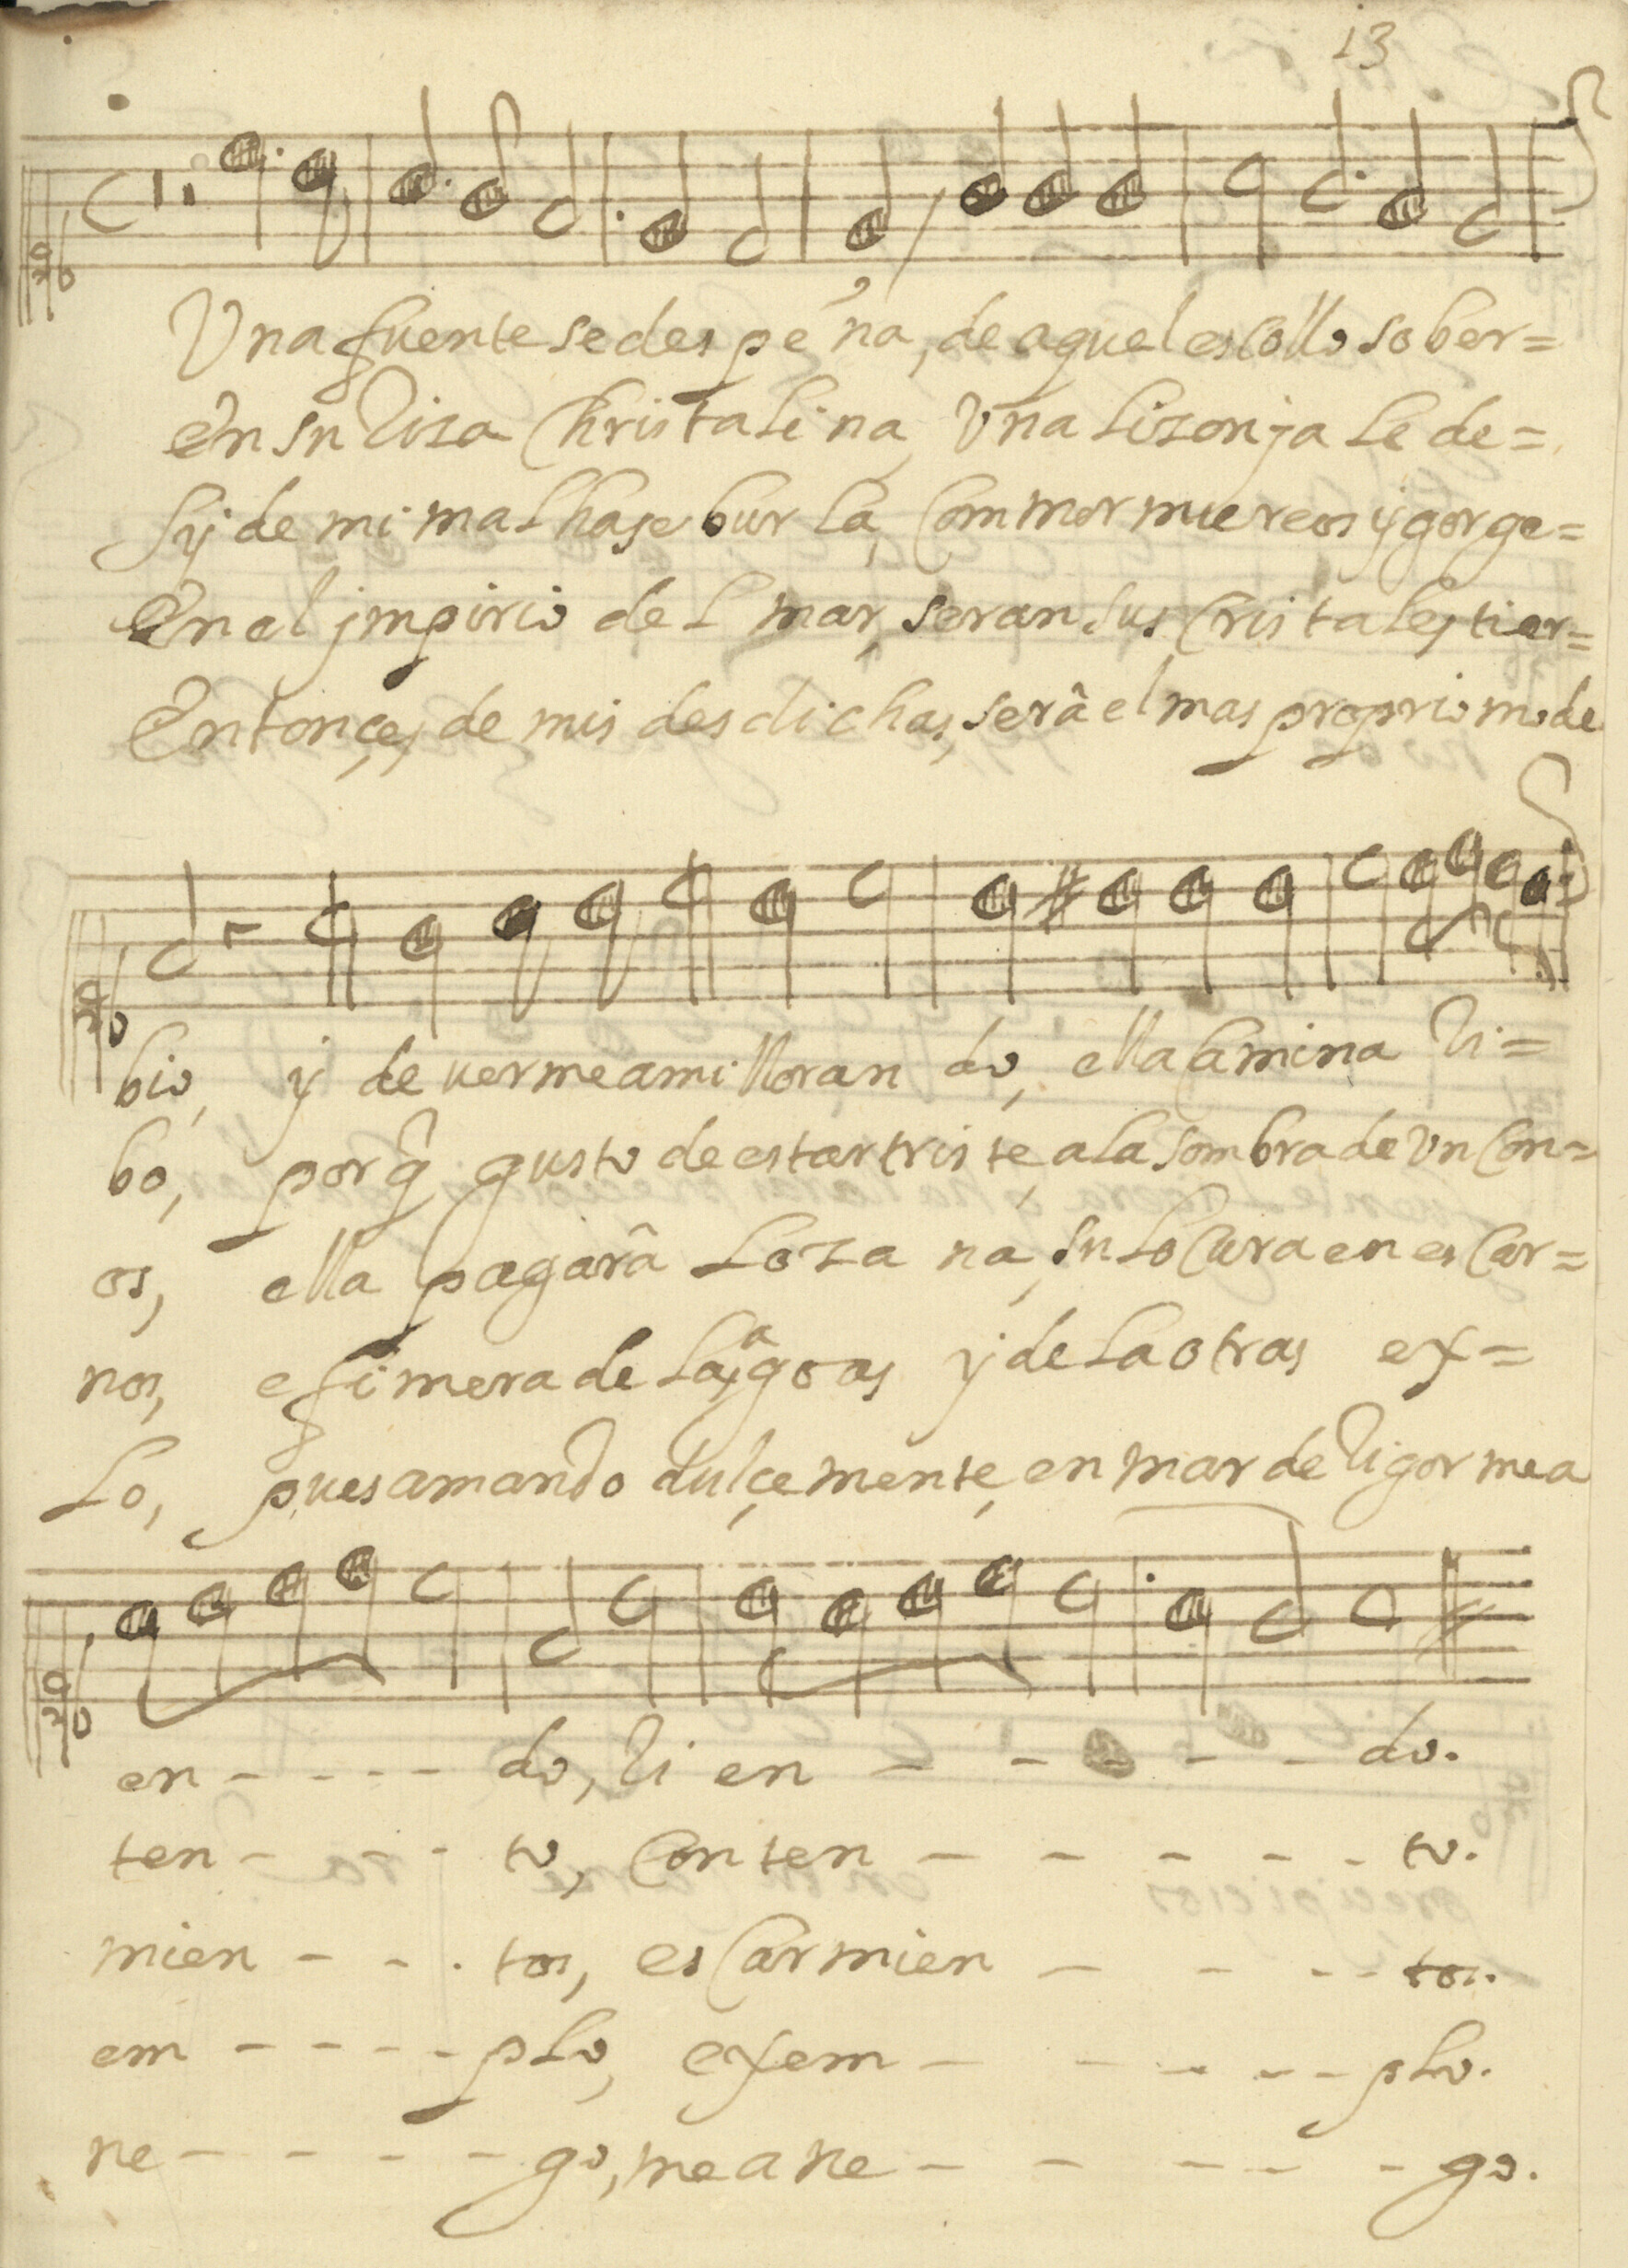 13
Una fuente se despeña, de aquel escollo sober=
en su Risa Christalina, Una lizonja le de=
Sy de mi mal hase burla, Com mormureos y gorge=
En el jmpirio del mar, seran sus Cristales tier=
Entonçes de mis desdichas, serâ el mas proprio mode
bio, y de uerme a mi lloran do, ella Camina Ri=
bo, porq̃ gusto de estar triste, a la sombra de Un Con=
os, ella pagarâ Lozana, su loCura en esCar=
nos, efimera de las agoas y de la otras ex=
Lo, pues amando dulçemente, en mar de Rigor me a
en - - - - do, Ri en - - - - - do.
ten - - - - to, Conten - - - - - to.
mien - - - tos, esCarmien - - - - tos.
em - - - - - plo, exem - - - - - plo.
ne - - - - - go, me a ne - - - - - go.